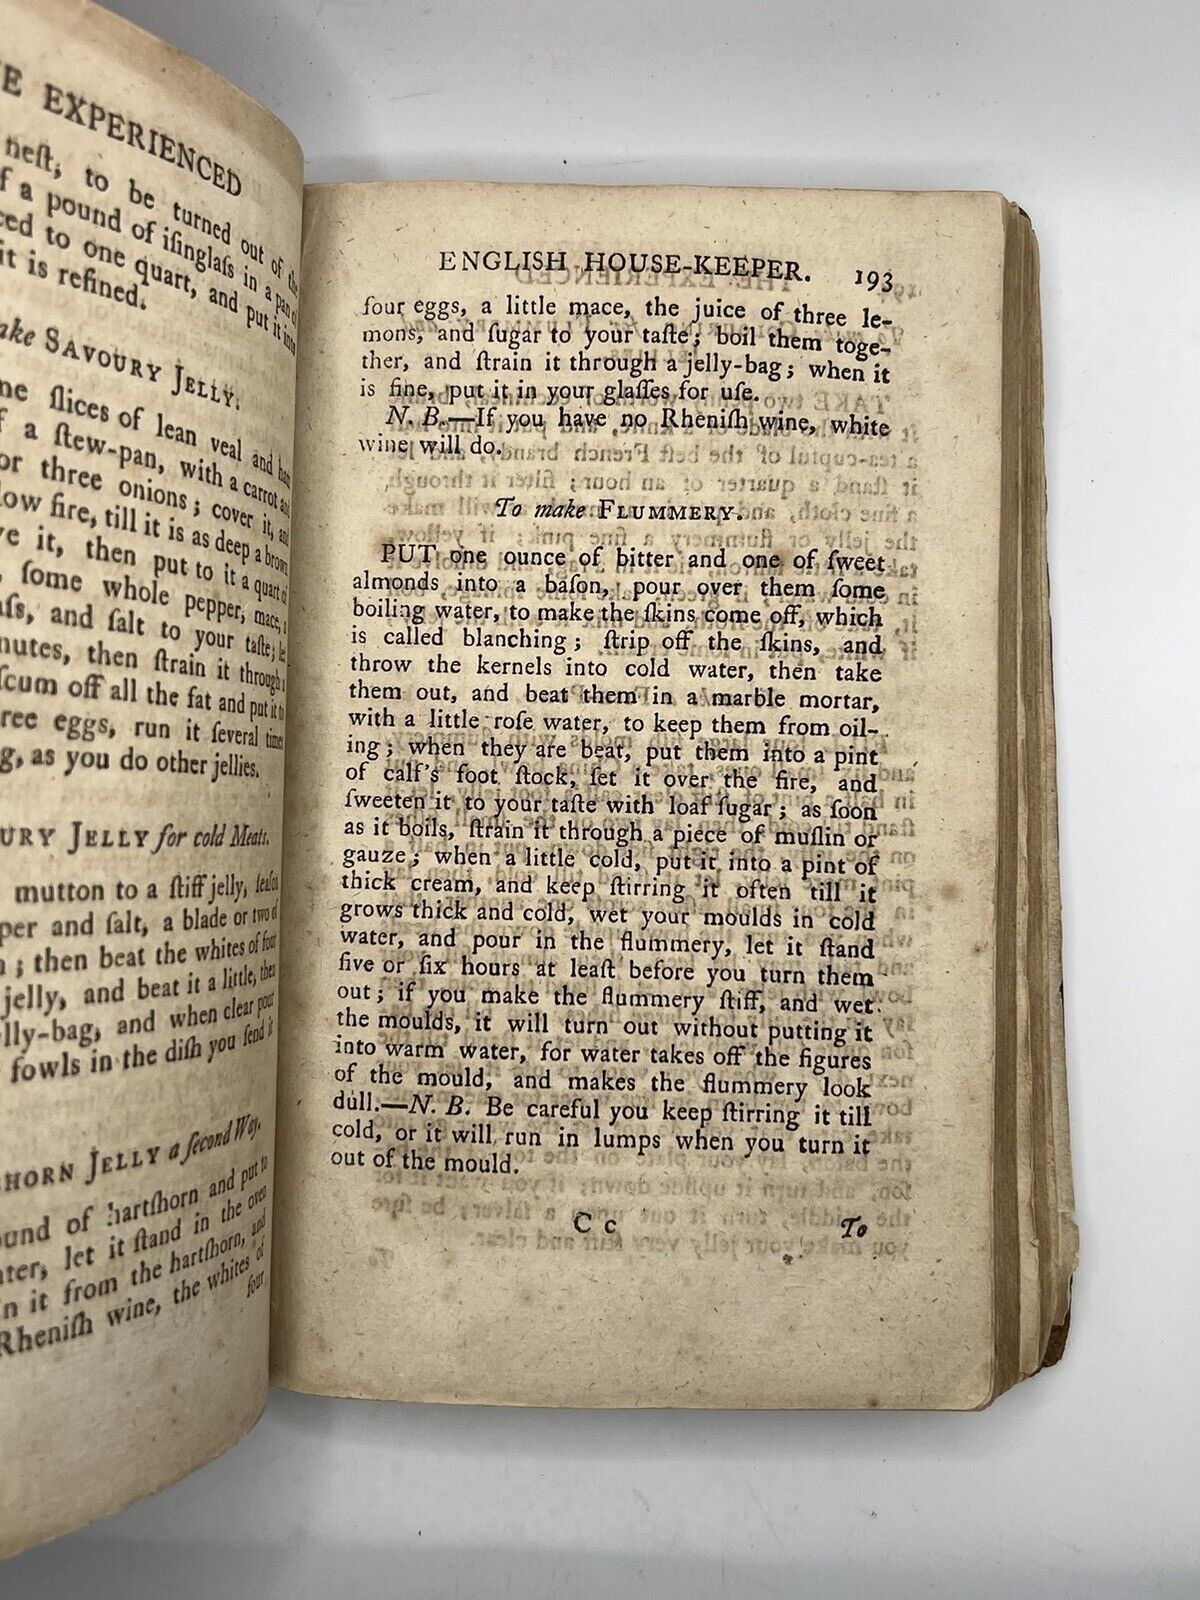 EXPERIENCED
neſt, to be turned out of the
a pound of iſinglaſs in a pan of
to one quart, and put it into
it is refined.
SAVOURY JELLY.
ſlices of lean veal and ham
a ſtew-pan, with a carrot and
or three onions; cover it, and
fire, till it is as deep a brown
it, then put to it a quart of
ſome whole pepper, mace, a
and ſalt to your taſte; let
then ſtrain it through a
ſcum off all the fat and put it to
eggs, run it ſeveral times
as you do other jellies.
JELLY for cold Meats.
mutton to a ſtiff jelly, ſeaſon
and ſalt, a blade or two of
; then beat the whites of four
jelly, and beat it a little, then
and when clear pour
fowls in the diſh you ſend it
JELLY a ſecond Way.
of hartſhorn and put to
let it ſtand in the oven
it from the hartſhorn, and
Rheniſh wine, the whites of
four
ENGLISH HOUSE-KEEPER. 193
four eggs, a little mace, the juice of three le-
mons, and ſugar to your taſte; boil them toge-
ther, and ſtrain it through a jelly-bag; when it
is fine, put it in your glaſſes for uſe.
N. B.—If you have no Rheniſh wine, white
wine will do.
To make FLUMMERY.
PUT one ounce of bitter and one of ſweet
almonds into a baſon, pour over them ſome
boiling water, to make the ſkins come off, which
is called blanching; ſtrip off the ſkins, and
throw the kernels into cold water, then take
them out, and beat them in a marble mortar,
with a little roſe water, to keep them from oil-
ing; when they are beat, put them into a pint
of calf's foot ſtock, ſet it over the fire, and
ſweeten it to your taſte with loaf ſugar; as ſoon
as it boils, ſtrain it through a piece of muſlin or
gauze; when a little cold, put it into a pint of
thick cream, and keep ſtirring it often till it
grows thick and cold, wet your moulds in cold
water, and pour in the flummery, let it ſtand
five or ſix hours at leaſt before you turn them
out; if you make the flummery ſtiff, and wet
the moulds, it will turn out without putting it
into warm water, for water takes off the figures
of the mould, and makes the flummery look
dull.—N. B. Be careful you keep ſtirring it till
cold, or it will run in lumps when you turn it
out of the mould.
C c To